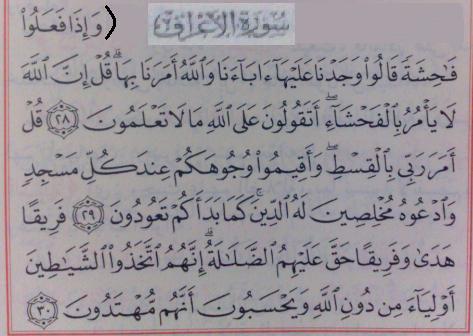 سورة الأعراف (وَإِذَا فَعَلُواْ
فَٰحِشَةً قَالُواْ وَجَدْنَا عَلَيْهَآ ءَابَآءَنَا وَٱللَّهُ أَمَرَنَا بِهَاۗ قُلْ إِنَّ ٱللَّهَ
لَا يَأْمُرُ بِٱلْفَحْشَآءِۖ أَتَقُولُونَ عَلَى ٱللَّهِ مَا لَا تَعْلَمُونَ ٢٨ قُلْ
أَمَرَ رَبِّى بِٱلْقِسْطِۖ وَأَقِيمُواْ وُجُوهَكُمْ عِندَ كُلِّ مَسْجِدٍ
وَٱدْعُوهُ مُخْلِصِينَ لَهُ ٱلدِّينَۚ كَمَا بَدَأَكُمْ تَعُودُونَ ٢٩ فَرِيقًا
هَدَىٰ وَفَرِيقًا حَقَّ عَلَيْهِمُ ٱلضَّلَٰلَةُۗ إِنَّهُمُ ٱتَّخَذُواْ ٱلشَّيَٰطِينَ
أَوْلِيَآءَ مِن دُونِ ٱللَّهِ وَيَحْسَبُونَ أَنَّهُم مُّهْتَدُونَ ٣٠